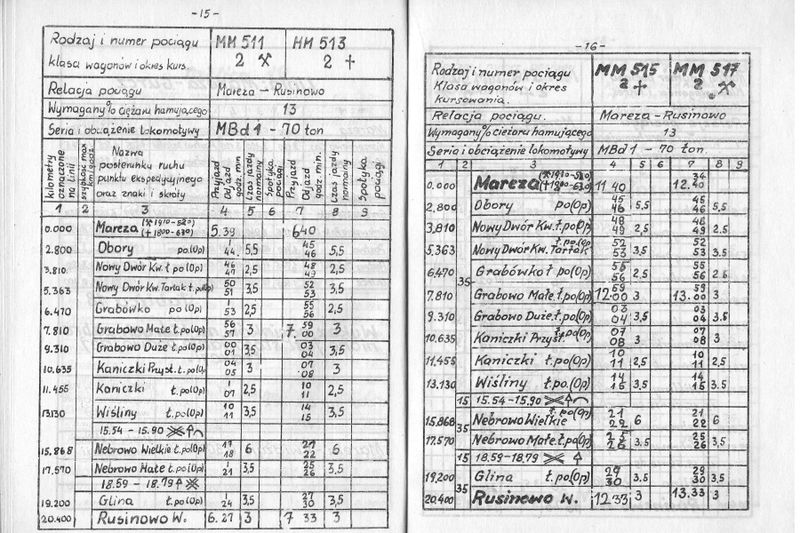 -15-
Rodzaj i numer pociągu MM 511 MM 513
klasa wagonów i okres kurs. 2 ⚒ 2 +
Relacja pociągu Mareza – Rusinowo
Wymagany % ciężaru hamującego 13
Seria i obciążenie lokomotywy MBd1 - 70 ton
kilometry oznaczone linii
szybkość max km/godz.
Nazwa posterunku ruchu punktu ekspedycyjnego oraz znaki i skróty
Przyjazd Odjazd godz. min.
Czas jazdy normalny
Spotyka pociągi
Przyjazd Odjazd godz. min.
Czas jazdy normalny
Spotyka pociągi
1 2 3 4 5 6 7 8 9
0.000 Mareza (⚒1910-520) (+1800-630) 5.39 640
2.800 Obory po(Op) 44 5,5 45 46 5,5
3.810 Nowy Dwór Kw. ł po(Op) 46 47 2,5 48 49 2,5
5.363 Nowy Dwór Kw. Tartak ł.po(Op) 50 51 3,5 52 53 3,5
6.470 Grabówko po(Op) 53 2,5 55 56 2,5
7.810 Grabowo Małe ł.po(Op) 56 57 3 7. 59 00 3
9.310 Grabowo Duże ł.po(Op) 00 01 3,5 03 04 3,5
10.635 Kaniczki Przyst. ł.po(Op) 04 05 3 07 08 3
11.455 Kaniczki ł.po(Op) 07 2,5 10 11 2,5
13.130 Wiśliny ł.po(Op) 10 11 3,5 14 15 3,5
15.54 – 15.90
15.868 Nebrowo Wielkie ł.po(Op) 17 18 6 21 22 6
17.570 Nebrowo Małe ł.po(Op) 21 3,5 25 26 3,5
18.59 – 18.79
19.200 Glina ł.po(Op) 24 3,5 27 30 3,5
20.400 Rusinowo W. 6.27 3 7 33 3
-16-
Rodzaj i numer pociągu MM 515 MM 517
Klasa wagonów i okres kursowania. 2 + 2 ⚒
Relacja pociągu. Mareza - Rusinowo
Wymagany % ciężaru hamującego 13
Seria i obciążenie lokomotywy MBd1 - 70 ton
1 2 3 4 5 6 7 8 9
0.000 Mareza (⚒1910-520) (+1800-630) 11 40 12. 34 40
2.800 Obory po(Op) 45 46 5,5 45 46 5,5
3.810 Nowy Dwór Kw. ł.po(Op) 48 49 2,5 48 49 2,5
5.363 Nowy Dwór Kw. Tartak ł.po(Op) 52 53 3,5 52 53 3,5
6.470 Grabówko ł po(Op) 55 56 2,5 55 56 2,5
35
7.810 Grabowo Małe ł.po(Op) 12. 59 00 3 13. 59 00 3
9.310 Grabowo Duże ł.po(Op) 03 04 3,5 03 04 3.5
10.635 Kaniczki Przyst. ł.po(Op) 07 08 3 07 08 3
11.455 Kaniczki ł po(Op) 10 11 2,5 10 11 2,5
13.130 Wiśliny ł.po.(Op) 14 15 3,5 14 15 3.5
15 15.54 – 15.90
15.868 35 Nebrowo Wielkie ł.po(Op) 21 22 6 21 22 6
17.570 Nebrowo Małe ł.po(Op) 25 26 3,5 25 26 3,5
15 18.59 – 18.79
19.200 Glina ł.po(Op) 29 30 3.5 29 30 3.5
35
20.400 Rusinowo W. 12 33 3 13.33 3